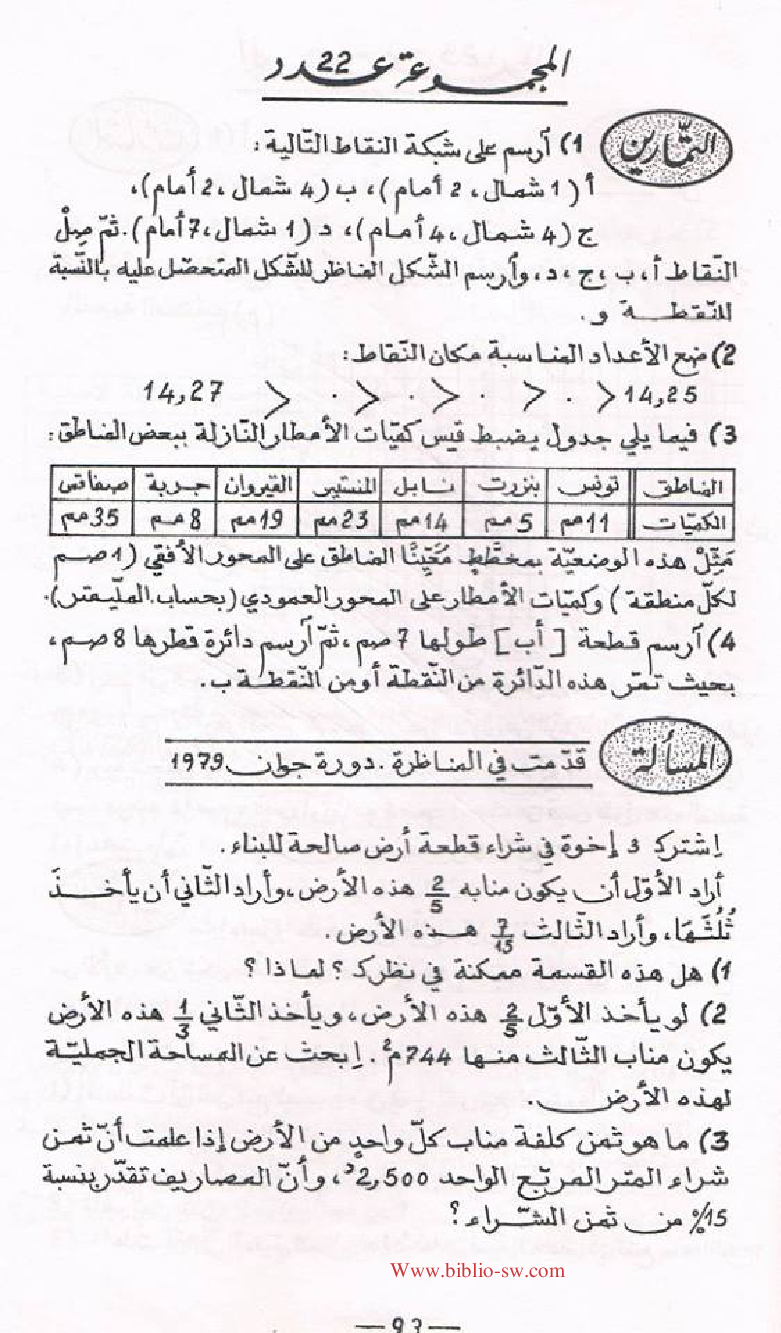 المجموعة عدد 22
التمّارين
1) أرسم على شبكة النقاط التّالية :
أ (1 شمال ، 2 أمام) ، ب (4 شمال ، 2 أمام) ،
ج (4 شمال ، 4 أمام) ، د (1 شمال ، 7 أمام) . ثمّ صِلْ
النّقاط أ ، ب ، ج ، د ، وأرسم الشّكل المناظر للشّكل المتحصّل عليه بالنّسبة
للنّقطة و .
2) ضع الأعداد المناسبة مكان النّقاط :
14,25 < . < . < . < . < 14,27
3) فيما يلي جدول يضبط قيس كميّات الأمطار النّازلة ببعض المناطق :
المناطق تونس بنزرت نابل المنستير القيروان جربة صفاقس
الكميّات 11مم 5مم 14مم 23مم 19مم 8مم 35مم
مَثِّلْ هذه الوضعيّة بمخطّط مُعَيِّنًا المناطق على المحور الأفقي (1 صم
لكلّ منطقة) وكميّات الأمطار على المحور العمودي (بحساب المليّمتر) .
4) أرسم قطعة [أب] طولها 7 صم ، ثمّ أرسم دائرة قطرها 8 صم ،
بحيث تمرّ هذه الدّائرة من النّقطة أ ومن النّقطة ب .
المسألة
قدّمت في المناظرة . دورة جوان 1979
اِشترك 3 إخوة في شراء قطعة أرض صالحة للبناء .
أراد الأوّل أن يكون منابه 2/5 هذه الأرض ، وأراد الثّاني أن يأخذَ
ثُلُثَهَا ، وأراد الثّالث 7/15 هذه الأرض .
1) هل هذه القسمة ممكنة في نظرك ؟ لماذا ؟
2) لو يأخذ الأوّل 2/5 هذه الأرض ، ويأخذ الثّاني 1/3 هذه الأرض
يكون مناب الثّالث منها 744 م² . اِبحث عن المساحة الجمليّة
لهذه الأرض .
3) ما هو ثمن كلفة مناب كلّ واحدٍ من الأرض إذا علمت أنّ ثمن
شراء المتر المربّع الواحد 2,500د ، وأنّ المصاريف تقدّر بنسبة
15% من ثمن الشّراء ؟
Www.biblio-sw.com
— 93 —